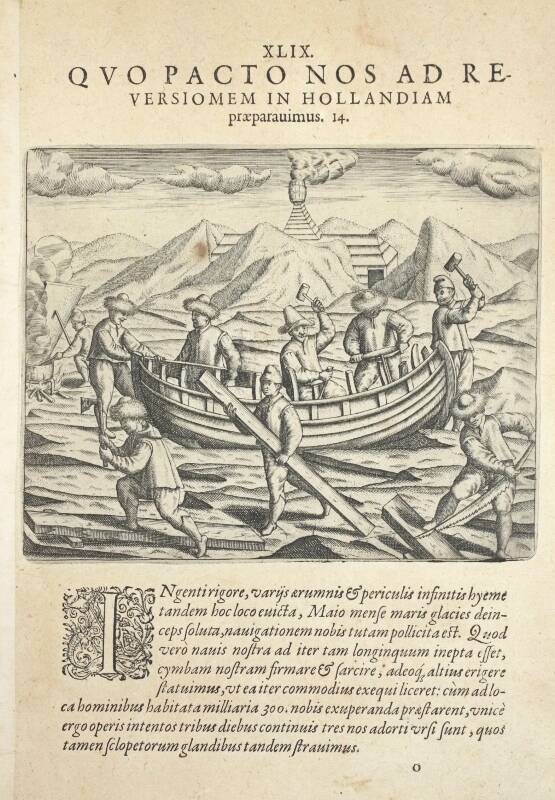 XLIX.
QVO PACTO NOS AD RE-
VERSIOMEM IN HOLLANDIAM
præparauimus. 14.
INgenti rigore, varijs ærumnis & periculis infinitis hyeme
tandem hoc loco euicta, Maio mense maris glacies dein-
ceps soluta, nauigationem nobis tutam pollicita est. Quod
verò nauis nostra ad iter tam longinquum inepta esset,
cymbam nostram firmare & sarcire, adeoq, altius erigere
statuimus, vt ea iter commodius exequi liceret: cùm ad lo-
ca hominibus habitata milliaria 300. nobis exuperanda præstarent, vnicè
ergo operis intentos tribus diebus continuis tres nos adorti vrsi sunt, quos
tamen sclopetorum glandibus tandem strauimus.
o